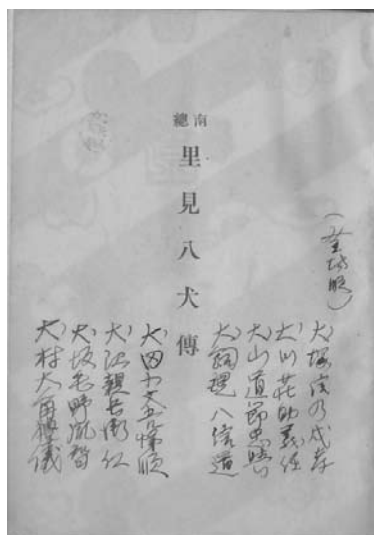 南總
里見八犬傳
犬塚信乃戍孝
犬川荘助義任
犬山道節忠與
犬飼現八信道
犬田小文吾悌順
犬江親兵衛仁
犬坂毛野胤智
犬村大角禮儀